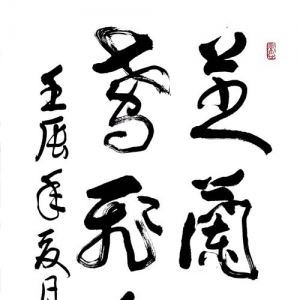 芝蘭
鳶飛
壬辰年夏月